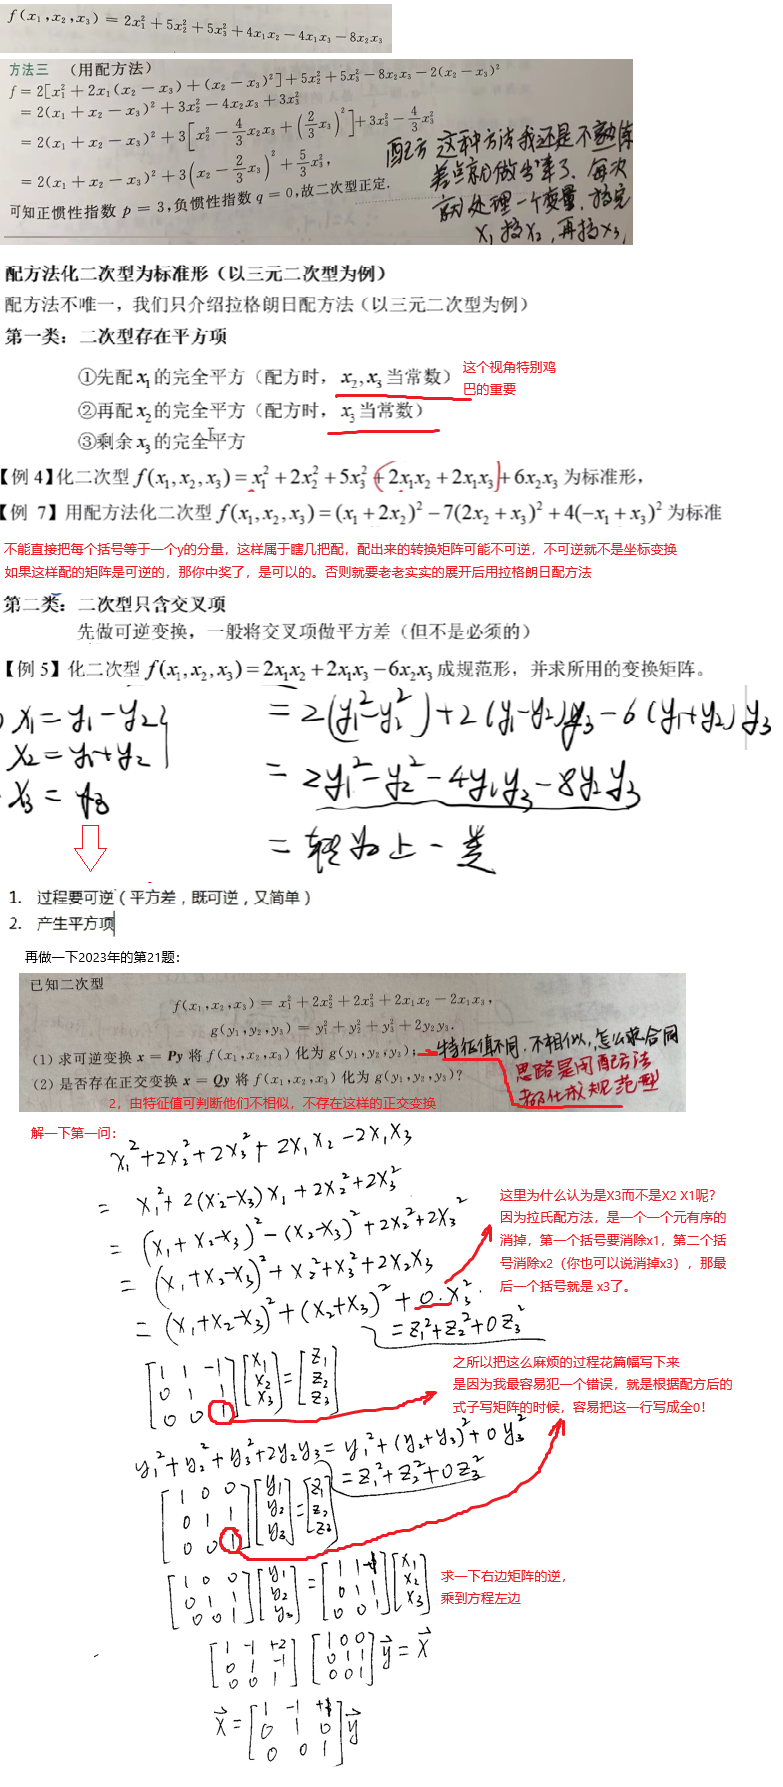 f(x₁,x₂,x₃) = 2x₁² + 5x₂² + 5x₃² + 4x₁x₂ − 4x₁x₃ − 8x₂x₃
方法三 （用配方法）
f = 2[x₁² + 2x₁(x₂ − x₃) + (x₂ − x₃)²] + 5x₂² + 5x₃² − 8x₂x₃ − 2(x₂ − x₃)²
= 2(x₁ + x₂ − x₃)² + 3x₂² − 4x₂x₃ + 3x₃²
= 2(x₁ + x₂ − x₃)² + 3[x₂² − 4/3 x₂x₃ + (2/3 x₃)²] + 3x₃² − 4/3 x₃²
= 2(x₁ + x₂ − x₃)² + 3(x₂ − 2/3 x₃)² + 5/3 x₃²,
可知正惯性指数 p = 3,负惯性指数 q = 0,故二次型正定.
配方 这种方法我还是不熟练
差点就做出来了、每次
就处理一个变量、搞完
x₁ 搞x₂，再搞x₃，
配方法化二次型为标准形（以三元二次型为例）
配方法不唯一，我们只介绍拉格朗日配方法（以三元二次型为例）
第一类：二次型存在平方项
①先配 x₁ 的完全平方（配方时， x₂,x₃ 当常数）
这个视角特别鸡
巴的重要
②再配 x₂ 的完全平方（配方时， x₃ 当常数）
③剩余 x₃ 的完全平方
【例 4】化二次型 f(x₁,x₂,x₃) = x₁² + 2x₂² + 5x₃² + 2x₁x₂ + 2x₁x₃ + 6x₂x₃ 为标准形，
【例 7】用配方法化二次型 f(x₁,x₂,x₃) = (x₁ + 2x₂)² − 7(2x₂ + x₃)² + 4(−x₁ + x₃)² 为标准
不能直接把每个括号等于一个y的分量，这样属于瞎几把配，配出来的转换矩阵可能不可逆，不可逆就不是坐标变换
如果这样配的矩阵是可逆的，那你中奖了，是可以的。否则就要老老实实的展开后用拉格朗日配方法
第二类：二次型只含交叉项
先做可逆变换，一般将交叉项做平方差（但不是必须的）
【例 5】化二次型 f(x₁,x₂,x₃) = 2x₁x₂ + 2x₁x₃ − 6x₂x₃ 成规范形，并求所用的变换矩阵。
x₁ = y₁ − y₂
x₂ = y₁ + y₂
x₃ = y₃
= 2(y₁² − y₂²) + 2(y₁ − y₂)y₃ − 6(y₁ + y₂)y₃
= 2y₁² − y₂² − 4y₁y₃ − 8y₂y₃
= 转为上一类
1. 过程要可逆（平方差，既可逆，又简单）
2. 产生平方项
再做一下2023年的第21题：
已知二次型
f(x₁,x₂,x₃) = x₁² + 2x₂² + 2x₃² + 2x₁x₂ − 2x₁x₃,
g(y₁,y₂,y₃) = y₁² + y₂² + y₃² + 2y₂y₃.
(1) 求可逆变换 x = Py 将 f(x₁,x₂,x₃) 化为 g(y₁,y₂,y₃);
特征值不同，不相似，怎么求合同
(2) 是否存在正交变换 x = Qy 将 f(x₁,x₂,x₃) 化为 g(y₁,y₂,y₃)?
思路是用配方法
都化成规范型
2，由特征值可判断他们不相似，不存在这样的正交变换
解一下第一问：
x₁² + 2x₂² + 2x₃² + 2x₁x₂ − 2x₁x₃
= x₁² + 2(x₂−x₃)x₁ + 2x₂² + 2x₃²
= (x₁ + x₂ − x₃)² − (x₂−x₃)² + 2x₂² + 2x₃²
= (x₁ + x₂ − x₃)² + x₂² + x₃² + 2x₂x₃
= (x₁ + x₂ − x₃)² + (x₂+x₃)² + 0·x₃²
= z₁² + z₂² + 0z₃²
这里为什么认为是X3而不是X2 X1呢？
因为拉氏配方法，是一个一个元有序的
消掉，第一个括号要消除x1，第二个括
号消除x2（你也可以说消掉x3），那最
后一个括号就是 x3了。
[1 1 −1] [x₁] = [z₁]
[0 1 1] [x₂] [z₂]
[0 0 1] [x₃] [z₃]
之所以把这么麻烦的过程花篇幅写下来
是因为我最容易犯一个错误，就是根据配方后的
式子写矩阵的时候，容易把这一行写成全0！
y₁² + y₂² + y₃² + 2y₂y₃ = y₁² + (y₂+y₃)² + 0y₃²
= z₁² + z₂² + 0z₃²
[1 0 0] [y₁] = [z₁]
[0 1 1] [y₂] [z₂]
[0 0 1] [y₃] [z₃]
[1 0 0] [y₁] = [1 1 −1] [x₁]
[0 1 1] [y₂] [0 1 1] [x₂]
[0 0 1] [y₃] [0 0 1] [x₃]
求一下右边矩阵的逆，
乘到方程左边
[1 −1 +2] [1 0 0] y⃗ = x⃗
[0 1 −1] [0 1 1]
[0 0 1] [0 0 1]
x⃗ = [1 −1 +1] y⃗
[0 1 0]
[0 0 1]